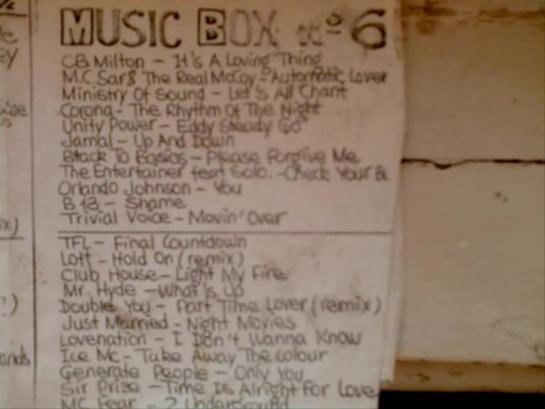 MUSIC BOX Nº 6
CB Milton - It's A Loving Thing
M.C. Sar & The Real McCoy - Automatic Lover
Ministry Of Sound - Let's All Chant
Corona - The Rhythm Of The Night
Unity Power - Eddy Steady Go
Jamal - Up And Down
Black To Basics - Please Forgive Me
The Entertainer feat Golo. - Check Your B
Orlando Johnson - You
B 13 - Shame
Trivial Voice - Movin' Over
TFL - Final Countdown
Loft - Hold On (remix)
Club House - Light My Fire
Mr. Hyde - What's Up
Double You - Part Time Lover (remix)
Just Married - Night Movies
Lovenation - I Don't Wanna Know
Ice Mc - Take Away The Colour
Generate People - Only You
Sir Prize - Time Is Alright For Love
MC Fear - 2 Underground